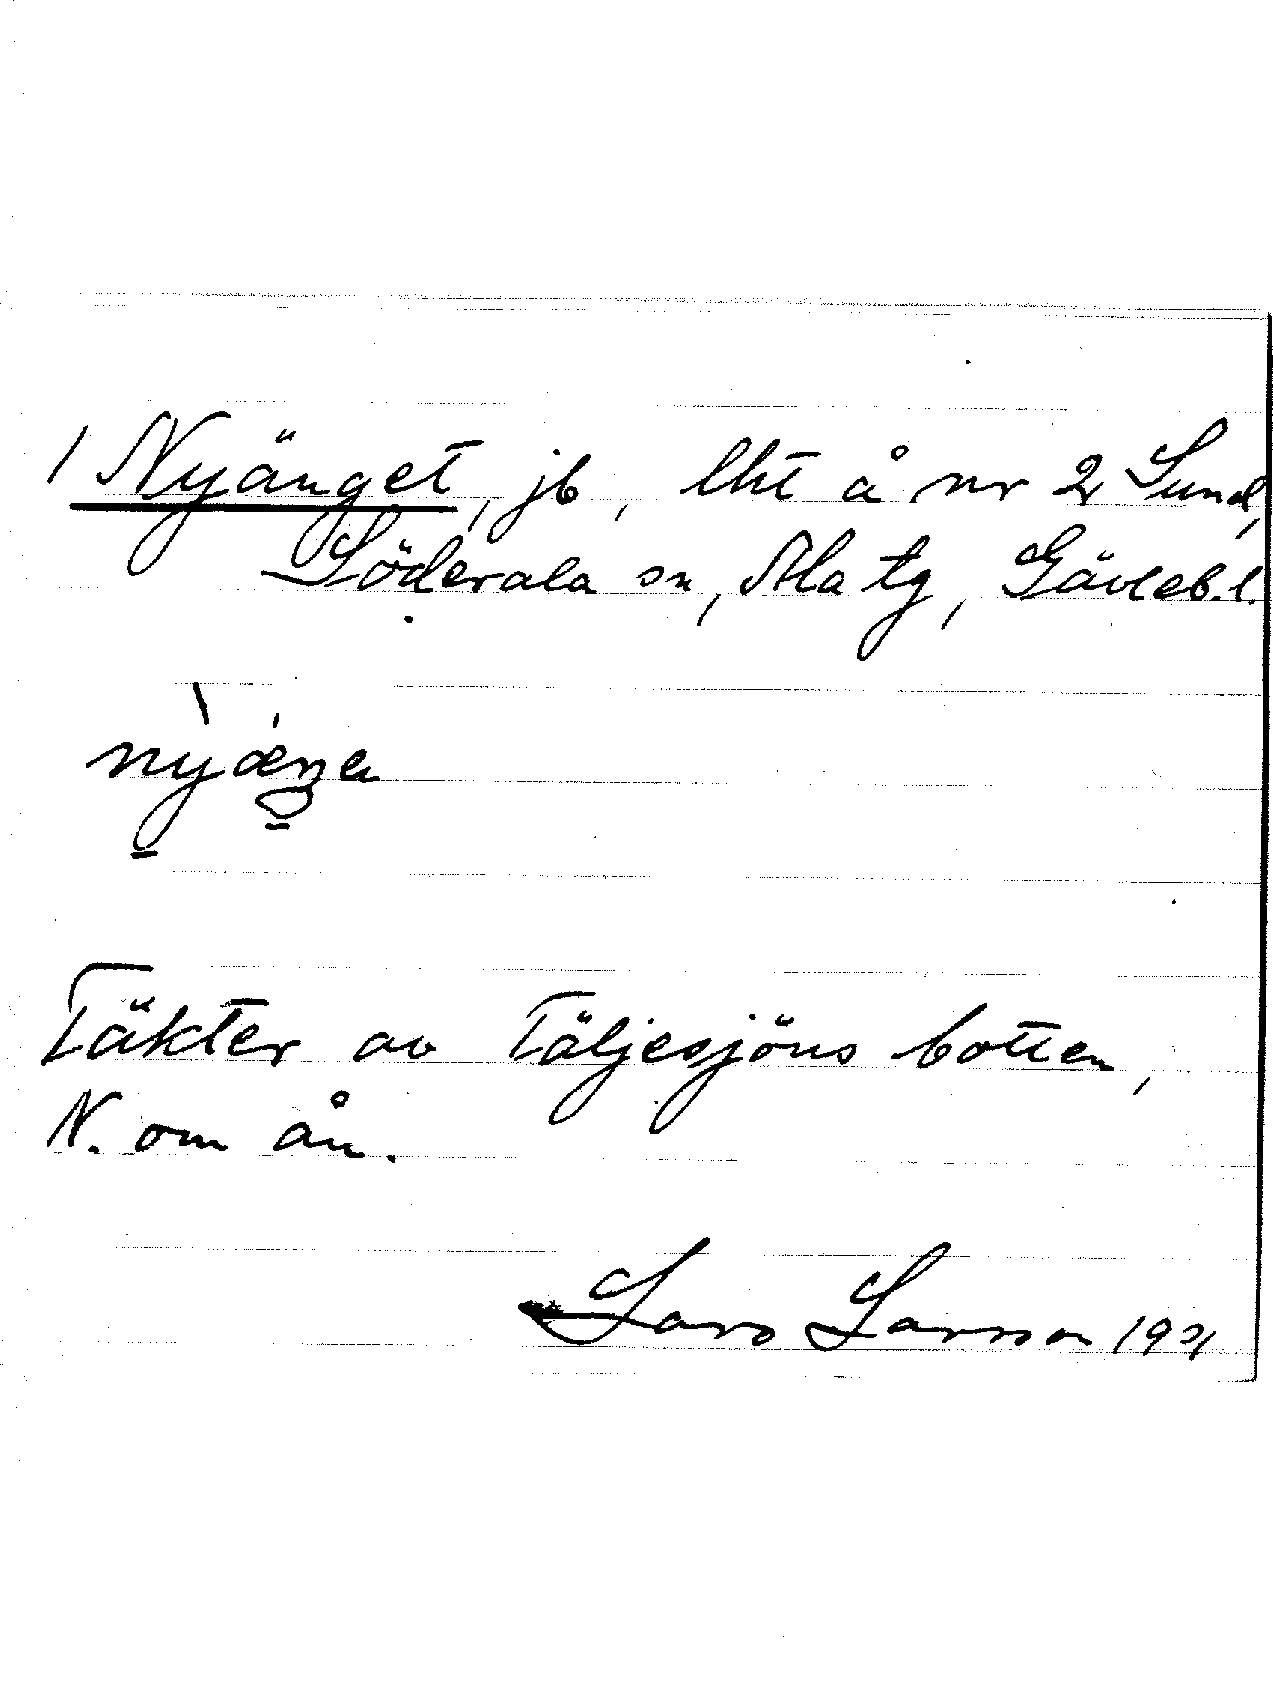 1 Nyänget, jb, lht å nr 2 Sund,
Söderala sn, Ala tg, Gävleb.l.
Täkter av Täljesjöns botten,
N. om ån.
Lars Larsson 1921